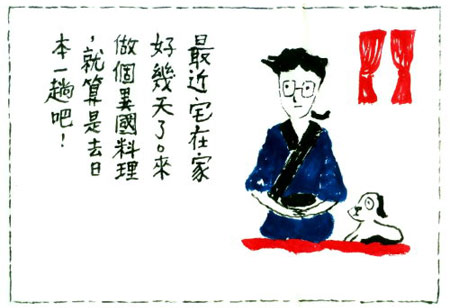 最近宅在家
好幾天了。來
做個異國料理
，就算是去日
本一趟吧！